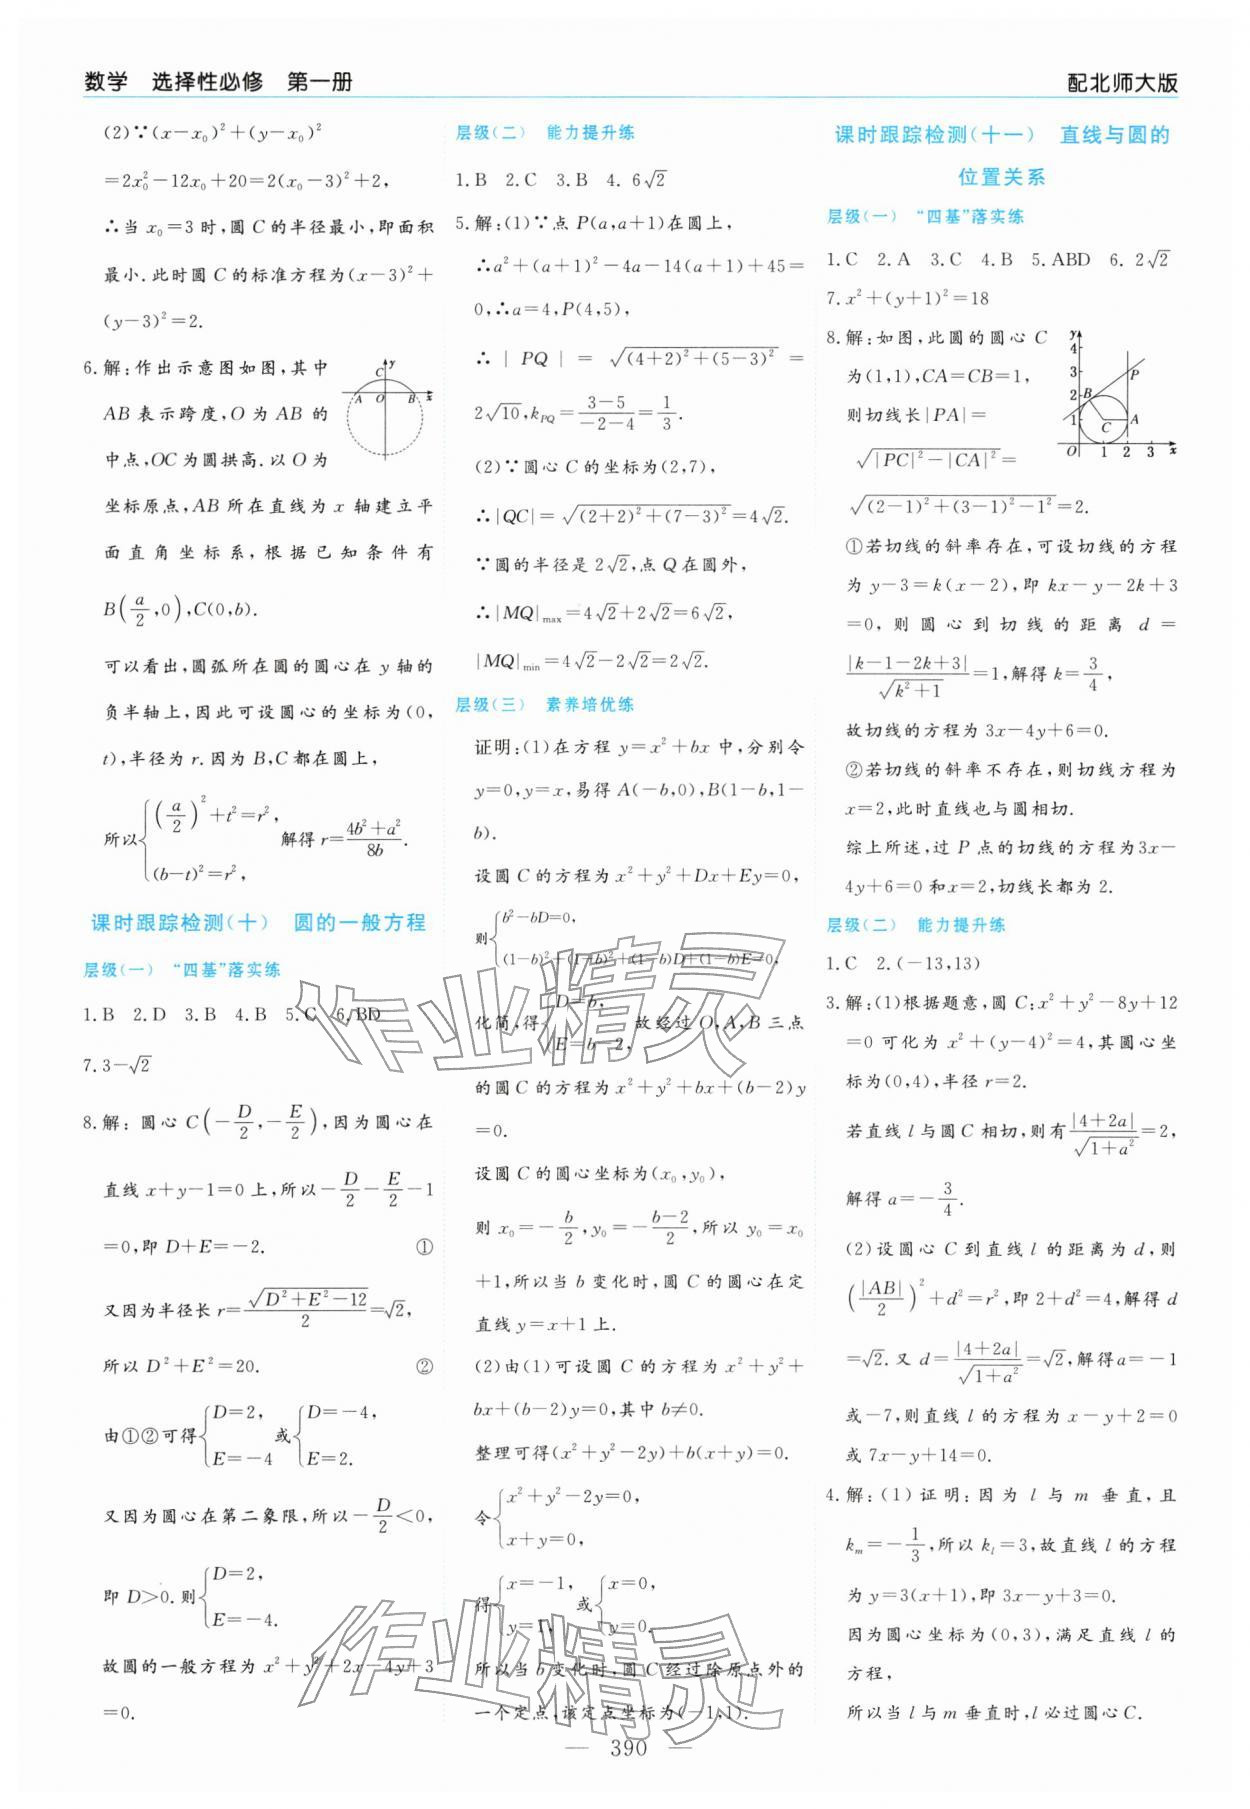 数学　选择性必修　第一册
配北师大版
(2)∵(x－x₀)²＋(y－x₀)²
＝2x₀²－12x₀＋20＝2(x₀－3)²＋2,
∴当 x₀＝3 时,圆 C 的半径最小,即面积
最小.此时圆 C 的标准方程为(x－3)²＋
(y－3)²＝2.
6.解:作出示意图如图,其中
AB 表示跨度,O 为 AB 的
中点,OC为圆拱高.以 O 为
坐标原点,AB 所在直线为 x 轴建立平
面直角坐标系,根据已知条件有
B(a/2,0),C(0,b).
可以看出,圆弧所在圆的圆心在 y 轴的
负半轴上,因此可设圆心的坐标为(0,
t),半径为 r.因为 B,C 都在圆上,
所以{(a/2)²＋t²＝r², (b－t)²＝r², 解得 r＝(4b²＋a²)/8b.
y
C
A O B x
课时跟踪检测(十)　圆的一般方程
层级(一)　“四基”落实练
1.B　2.D　3.B　4.B　5.C　6.BD
7.3－√2
8.解:圆心 C(－D/2,－E/2),因为圆心在
直线 x＋y－1＝0 上,所以－D/2－E/2－1
＝0,即 D＋E＝－2.　①
又因为半径长 r＝√(D²＋E²－12)/2＝√2,
所以 D²＋E²＝20.　②
由①②可得{D＝2, E＝－4 或{D＝－4, E＝2.
又因为圆心在第二象限,所以－D/2＜0,
即 D＞0.则{D＝2, E＝－4.
故圆的一般方程为 x²＋y²＋2x－4y＋3
＝0.
层级(二)　能力提升练
1.B　2.C　3.B　4. 6√2
5.解:(1)∵点 P(a,a＋1)在圆上,
∴a²＋(a＋1)²－4a－14(a＋1)＋45＝
0,∴a＝4,P(4,5),
∴ | PQ | ＝ √((4＋2)²＋(5－3)²) ＝
2√10,k_PQ＝(3－5)/(－2－4)＝1/3.
(2)∵圆心 C 的坐标为(2,7),
∴|QC|＝√((2＋2)²＋(7－3)²)＝4√2.
∵圆的半径是 2√2,点 Q 在圆外,
∴|MQ|max＝4√2＋2√2＝6√2,
|MQ|min＝4√2－2√2＝2√2.
层级(三)　素养培优练
证明:(1)在方程 y＝x²＋bx 中,分别令
y＝0,y＝x,易得 A(－b,0),B(1－b,1－
b).
设圆 C 的方程为 x²＋y²＋Dx＋Ey＝0,
则{b²－bD＝0, (1－b)²＋(1－b)²＋(1－b)D＋(1－b)E＝0,
化简,得{D＝b, E＝b－2, 故经过 O,A,B 三点
的圆 C 的方程为 x²＋y²＋bx＋(b－2)y
＝0.
设圆 C 的圆心坐标为(x₀,y₀),
则 x₀＝－b/2,y₀＝－(b－2)/2,所以 y₀＝x₀
＋1,所以当 b 变化时,圆 C 的圆心在定
直线 y＝x＋1 上.
(2)由(1)可设圆 C 的方程为 x²＋y²＋
bx＋(b－2)y＝0,其中 b≠0.
整理可得(x²＋y²－2y)＋b(x＋y)＝0.
令{x²＋y²－2y＝0, x＋y＝0,
得{x＝－1, y＝1, 或{x＝0, y＝0.
所以当 b 变化时,圆 C 经过除原点外的
一个定点,该定点坐标为(－1,1).
课时跟踪检测(十一)　直线与圆的
位置关系
层级(一)　“四基”落实练
1.C　2.A　3.C　4.B　5.ABD　6. 2√2
7.x²＋(y＋1)²＝18
8.解:如图,此圆的圆心 C
为(1,1),CA＝CB＝1,
则切线长|PA|＝
√(|PC|²－|CA|²)＝
√((2－1)²＋(3－1)²－1²)＝2.
y
4
3 P
2 B
1 C A
O 1 2 3 x
①若切线的斜率存在,可设切线的方程
为 y－3＝k(x－2),即 kx－y－2k＋3
＝0,则圆心到切线的距离 d＝
|k－1－2k＋3|/√(k²＋1)＝1,解得 k＝3/4,
故切线的方程为 3x－4y＋6＝0.
②若切线的斜率不存在,则切线方程为
x＝2,此时直线也与圆相切.
综上所述,过 P 点的切线的方程为3x－
4y＋6＝0 和 x＝2,切线长都为 2.
层级(二)　能力提升练
1.C　2.(－13,13)
3.解:(1)根据题意,圆 C:x²＋y²－8y＋12
＝0 可化为 x²＋(y－4)²＝4,其圆心坐
标为(0,4),半径 r＝2.
若直线 l 与圆 C 相切,则有|4＋2a|/√(1＋a²)＝2,
解得 a＝－3/4.
(2)设圆心 C 到直线 l 的距离为 d,则
(|AB|/2)²＋d²＝r²,即 2＋d²＝4,解得 d
＝√2.又 d＝|4＋2a|/√(1＋a²)＝√2,解得a＝－1
或－7,则直线 l 的方程为 x－y＋2＝0
或 7x－y＋14＝0.
4.解:(1)证明:因为 l 与 m 垂直,且
k_m＝－1/3,所以 k_l＝3,故直线 l 的方程
为 y＝3(x＋1),即 3x－y＋3＝0.
因为圆心坐标为(0,3),满足直线 l 的
方程,
所以当 l 与 m 垂直时,l 必过圆心 C.
作业精灵
作业精灵
390